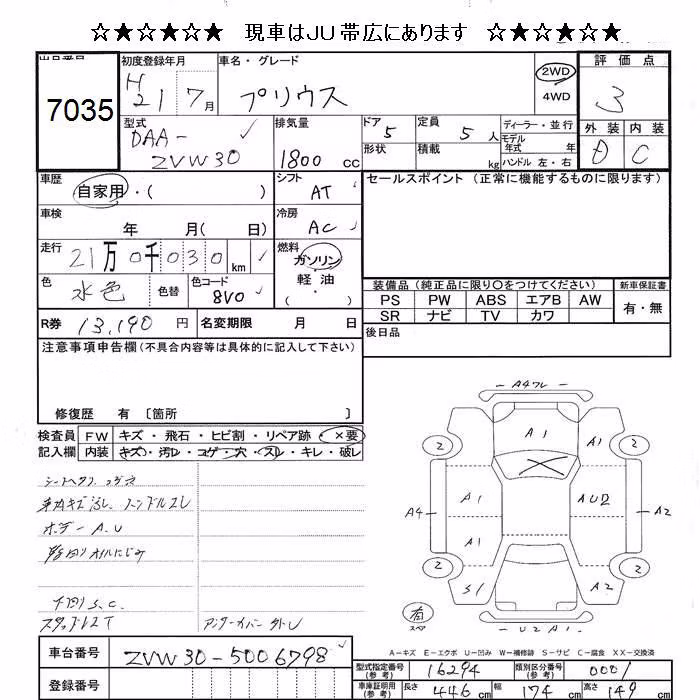 ☆★☆★☆★ 現車はJU帯広にあります ☆★☆★☆★
出品番号
7035
初度登録年月
H 21 7月
車名・グレード
プリウス
2WD
4WD
評価点
3
外装 内装
D C
型式
DAA-
ZVW30
排気量
1800 cc
ドア 5
形状
定員 5人
積載 kg
ディーラー・並行
モデル年式 年
ハンドル 左・右
車歴
自家用・( )
シフト AT
セールスポイント (正常に機能するものに限ります)
車検
年 月( 日)
冷房 AC
走行
21万0千030km
燃料
ガソリン
軽油
・
色 水色
色替
色コード 8V0
装備品 (純正品に限り〇をつけてください)
新車保証書
PS PW ABS エアB AW
有・無
SR ナビ TV カワ
R券 13,190円
名変期限 月 日
後日品
注意事項申告欄(不具合内容等は具体的に記入して下さい)
修復歴 有 〔箇所 〕
検査員 FW キズ・飛石・ヒビ割・リペア跡・×要
記入欄 内装 キズ・汚レ・コゲ・穴・スレ・キレ・破レ
ボデー A.U
下回りS.C.
スタッドレスT
アンダーカバー外レ
A4ワレ
A1
A1
2
2
A1
AU2
A4
A2
A1
2
2
S1
A2
有
スペア
U2A1
A-キズ E-エクボ U-凹み W-補修跡 S-サビ C-腐食 XX-交換済
車台番号 ZVW30-5006798
登録番号
型式指定番号(参考) 16294
類別区分番号(参考) 0001
車庫証明用(参考) 長さ 446cm 幅 174cm 高さ 149cm